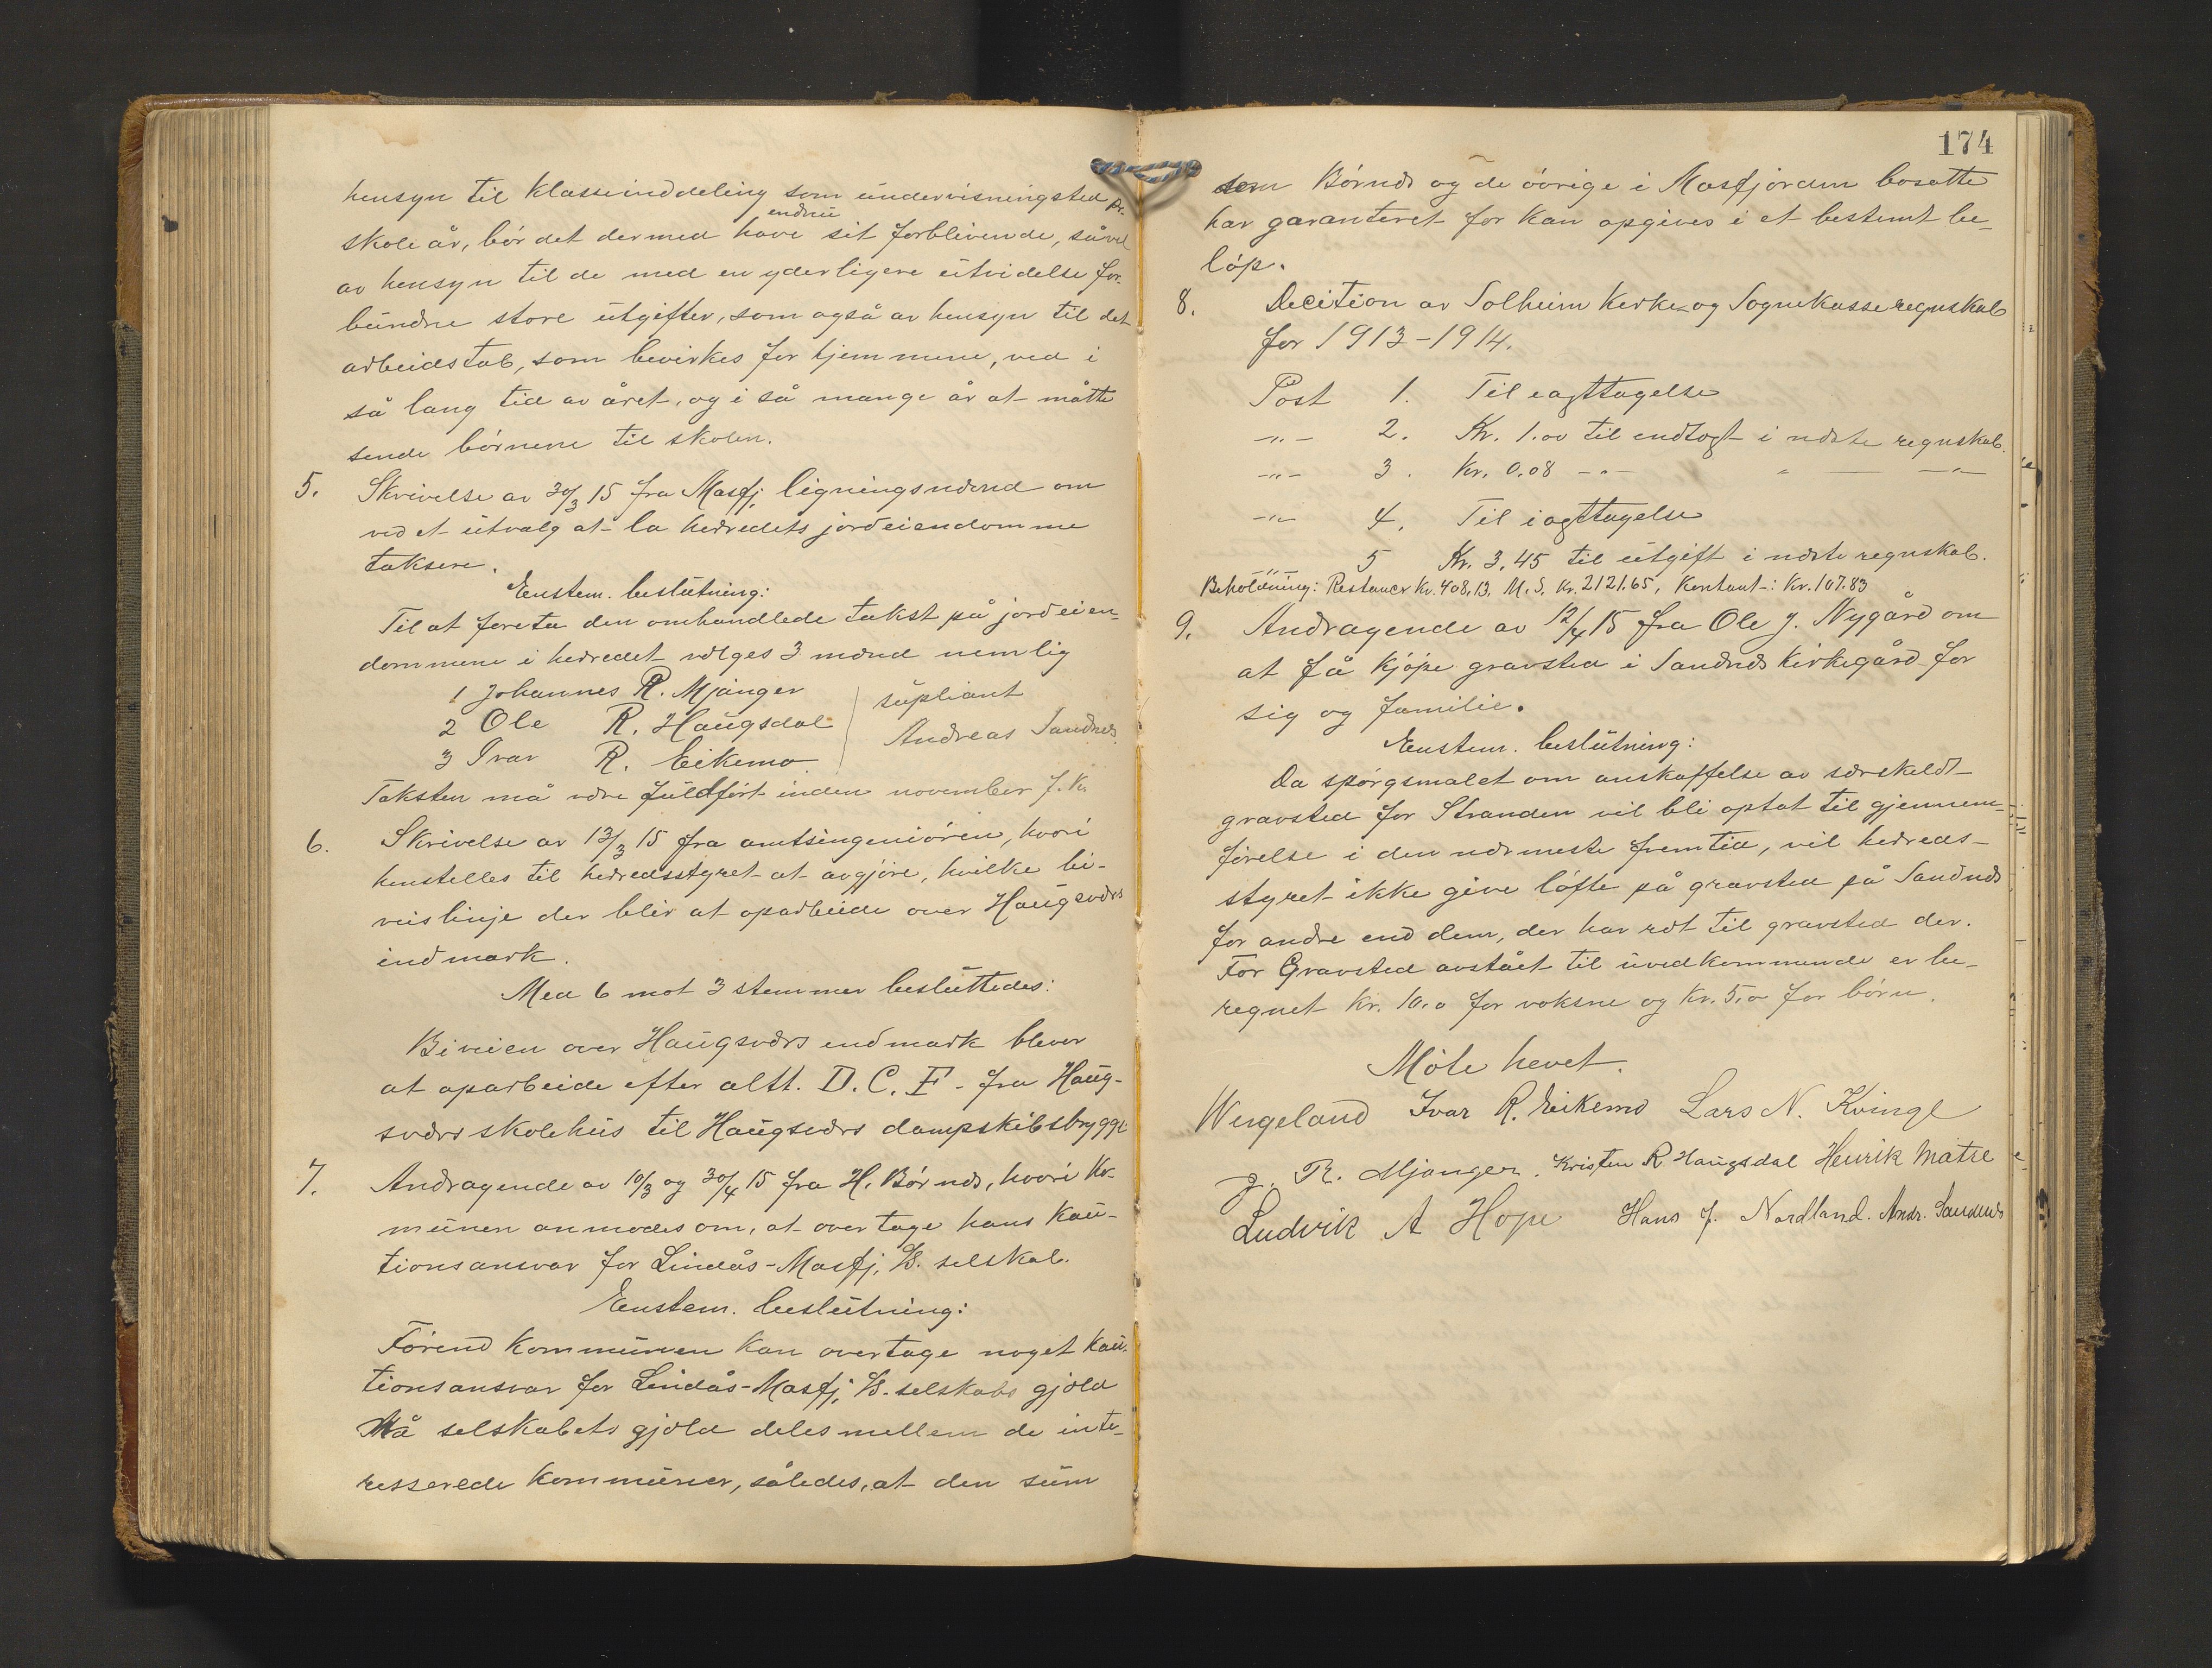 hensyn til klasseinddeling som undervisningsted pr.
skoleår, bör det dermed endnu have sit forblivende, såvel
av hensyn til de med en yderligere utvidelse for-
bundne store utgifter, som også av hensyn til det
arbeidstab, som bevirkes for hjemmene, ved i
så lang tid av året, og i så mange år at måtte
sende börnene til skolen.
5. Skrivelse av 30/3 15 fra Masfj. ligningsnævnd om
ved et utvalg at la herredets jordeiendomme
taksere.
Enstem. beslutning:
Til at foreta den omhandlede takst på jordeien-
dommene i herredet vælges 3 mænd nemlig
1 Johannes R. Mjanger
2 Ole R. Haugsdal
3 Ivar R. Eikemo
supliant
Andreas Sandnes.
Taksten må være fuldfört inden november f. k.
6. Skrivelse av 13/3 15 fra amtsingeniören, hvori
henstilles til herredsstyret at avgjöre, hvilke bi-
veislinje der blir at oparbeide over Haugsværs
indmark.
Med 6 mot 3 stemmer besluttedes:
Biveien over Haugsværs indmark blever
at oparbeide efter altt. D. C. F - fra Haug-
sværs skolehus til Haugsværs dampskibsbrygge
7. Andragende av 10/3 og 30/4 15 fra H. Börnæs, hvori Ko-
munen anmodes om, at overtage hans kau-
tionsansvar for Lindås-Masfj. D/S. selskab.
Enstem. beslutning:
Förend kommunen kan overtage noget kau-
tionsansvar for Lindås-Masfj. D/S. selskabs gjæld
Må selskabets gjæld deles mellem de inte-
resserede kommuner, således, at den sum
174
som Börnæs og de övrige i Masfjorden bosatte
har garanteret for kan opgives i et bestemt be-
löp.
8. Decition av Solheim Kirke og Sognekasseregnskab
for 1913-1914.
Post 1. Til eagttagelse
-"- 2. Kr. 1.00 til indtægt i næste regnskab.
-"- 3. Kr. 0.08 -"- " — -"-
-"- 4. Til iagttagelse
-"- 5 Kr. 3.45 til utgift i næste regnskab.
Beholdning: Restancer kr. 408,13. M. S. Kr. 2121.65, Kontant-: Kr. 107.83
9. Andragende av 12/4 15 fra Ole J. Nygård om
at få kjöpe gravsted i Sandnæs Kirkegård for
sig og familie.
Enstem. beslutning:
Da spörgsmalet om anskaffelse av særskeldt
gravsted for Stranden vil bli optat til gjennem-
förelse i den nærmeste fremtid, vil herreds-
styret ikke give löfte på gravsted på Sandnæs
for andre end dem, der har ræt til gravsted der.
For Gravsted avstået til uvedkommende er be-
regnet kr. 10.0 for voksne og kr. 5.0 for börn.
Möte hevet.
Wergeland Ivar R. Eikemo Lars N. Kvinge
J. R. Mjanger. Kristen R Haugsdal Henrik Matre
Ludvik A Hope Hans J. Nordland. Andr. Sandnæs